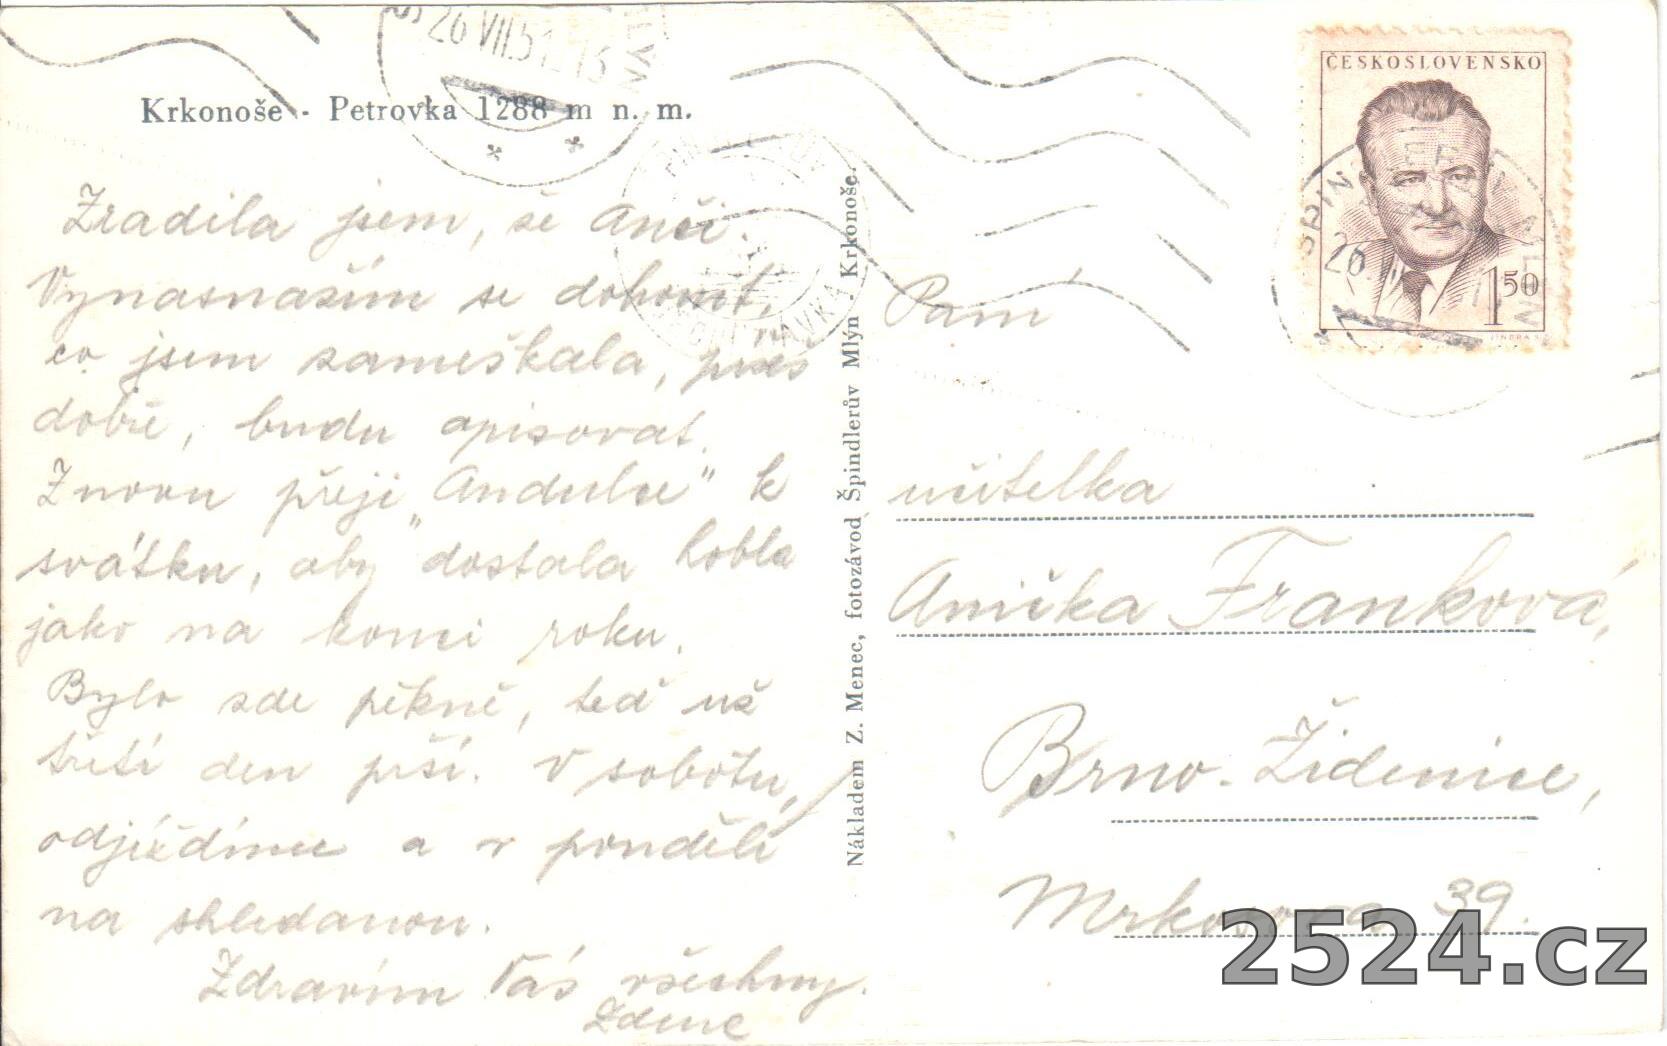 26 VII.51
Krkonoše - Petrovka 1288 m n. m.
ČESKOSLOVENSKO
1 50
Zradila jsem, še Anči.
Vynasnažím se dohonit,
co jsem zameškala,
dobře, budu opisovat.
Znovu přeji „Andulce" k
svátku, aby dostala hobla
jako na konci roku.
Bylo zde pěkně, teď už
třetí den prší. V sobotu,
odjíždíme a v pondělí
na shledanou.
Zdravím Vás všechny.
Zdene
Nákladem Z. Menec, fotozávod Špindlerův Mlýn, Krkonoše.
Paní
učitelka
Anička Franková,
Brno - Židenice,
Mrkosova 39.
2524.cz